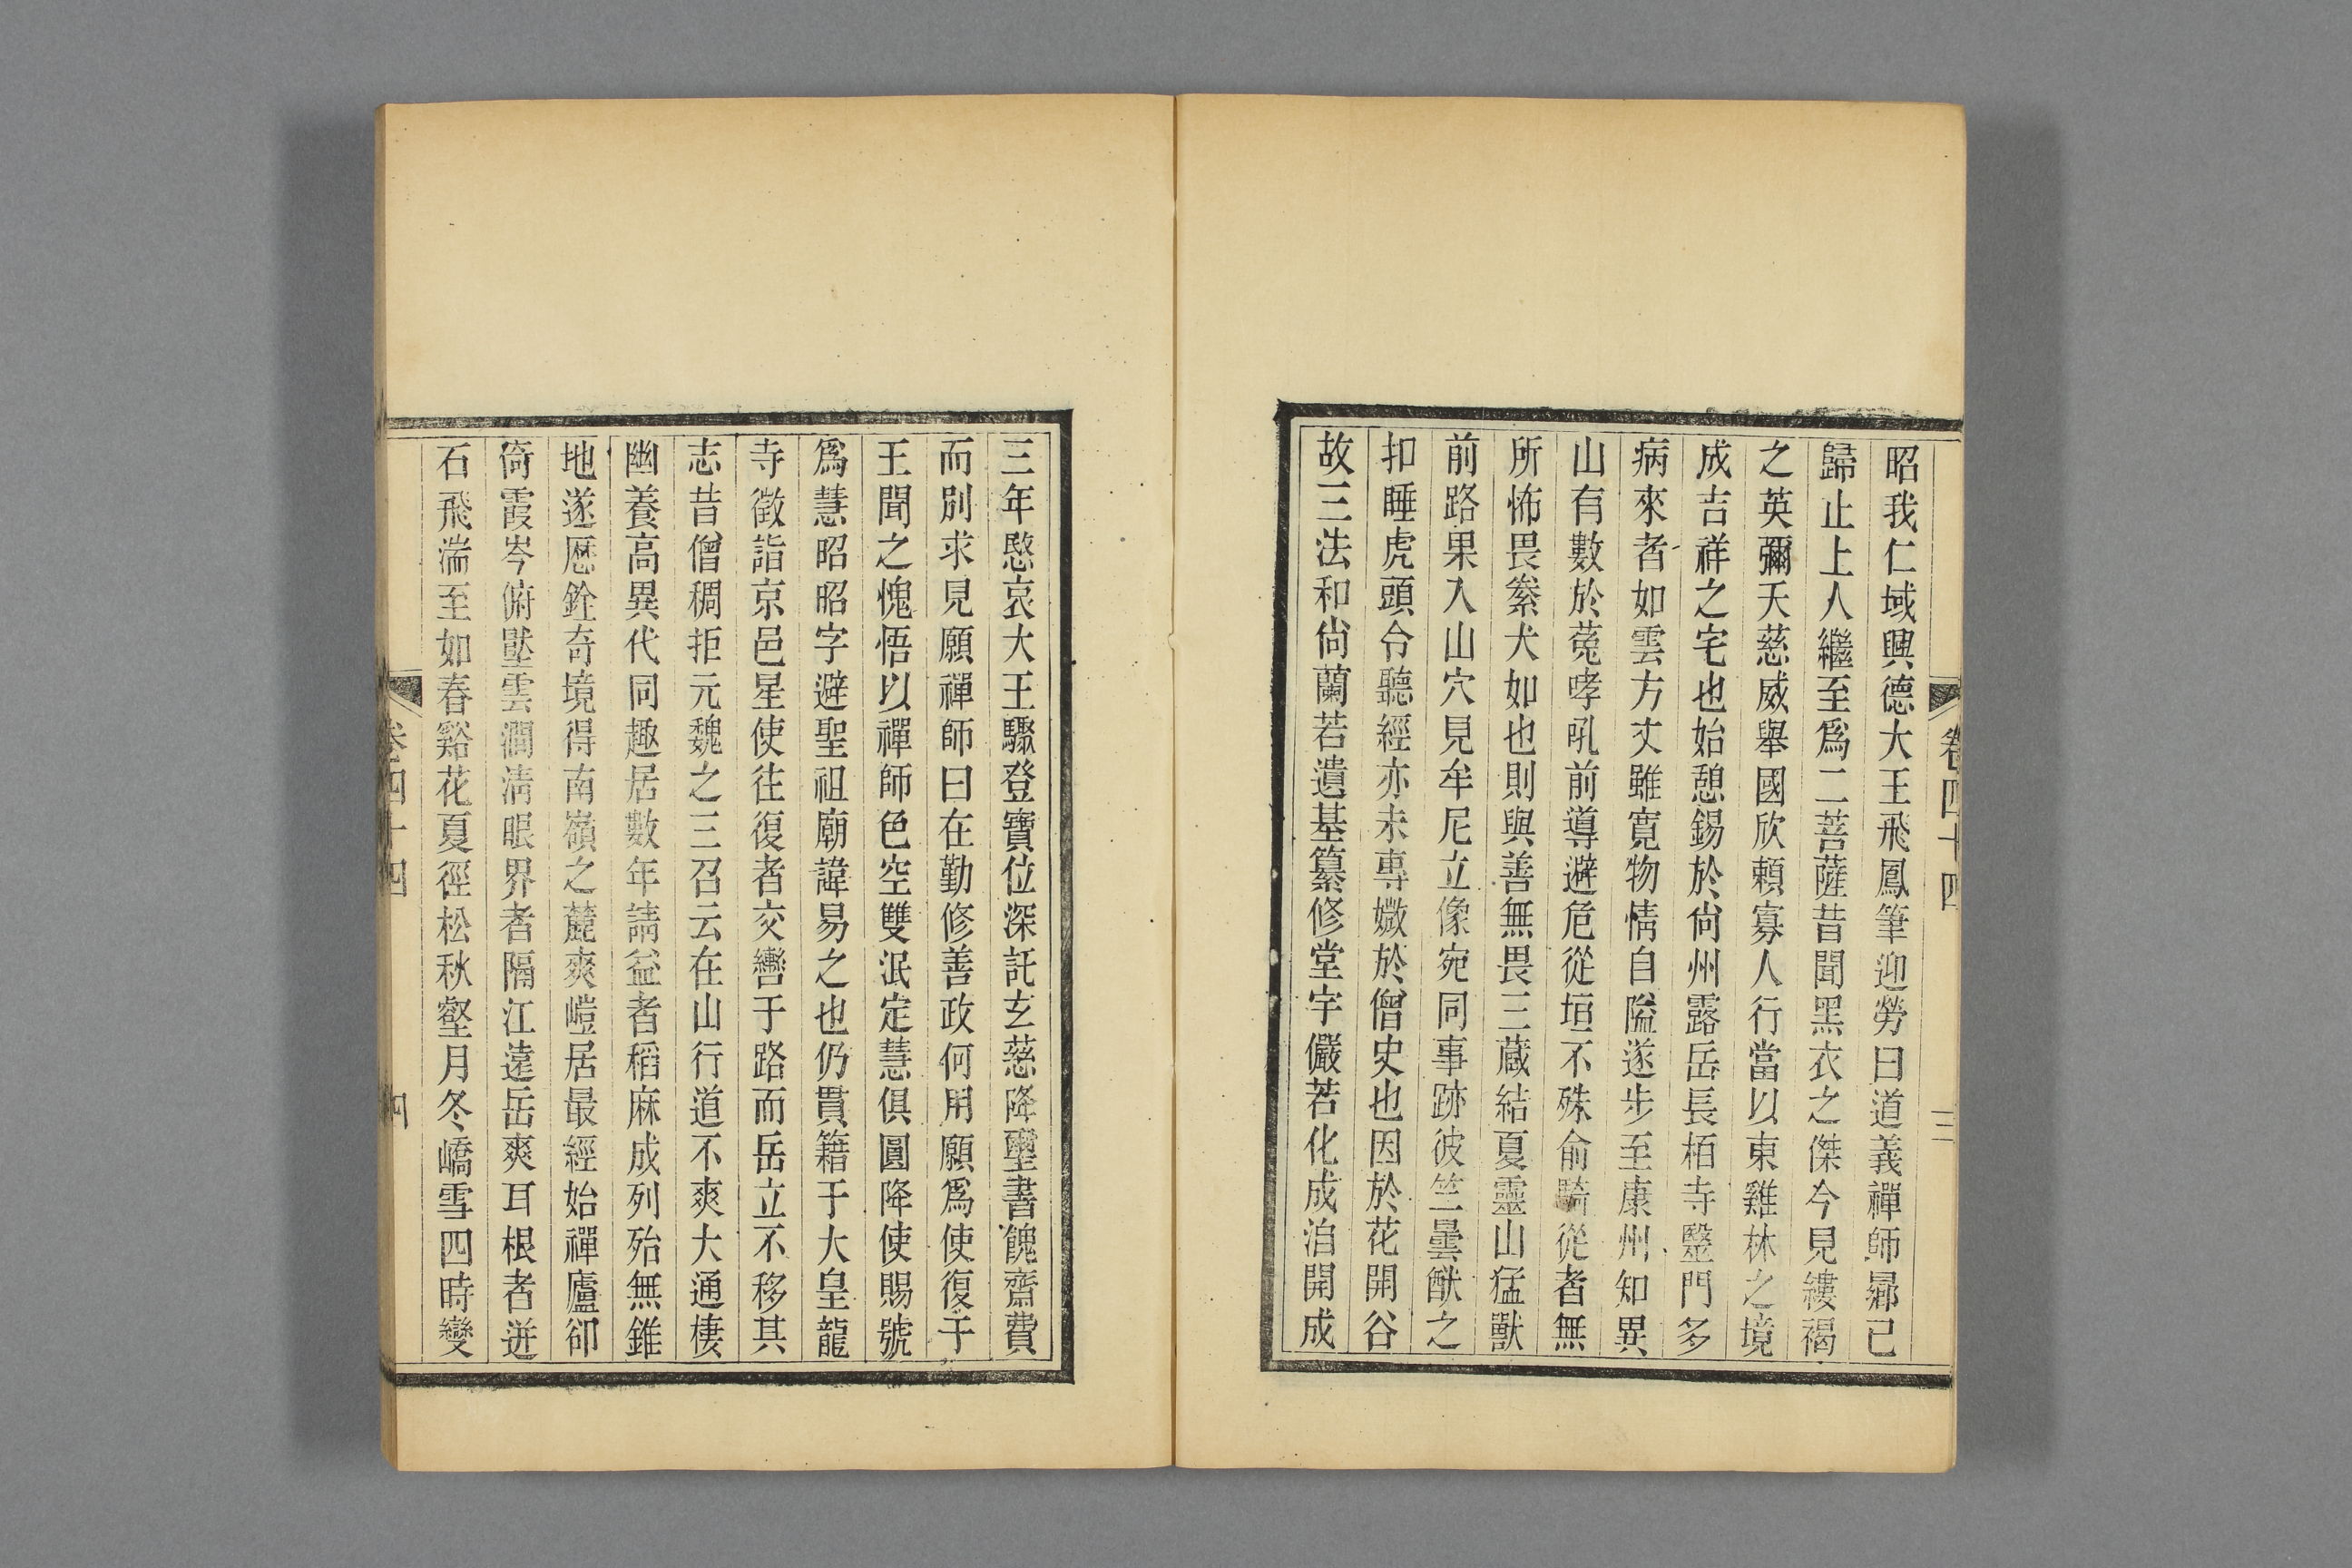 昭我仁域興德大王飛鳳筆迎勞曰道義禪師歸已
歸止上人繼至爲二菩薩昔聞黑衣之傑今見縷褐
之英彌天慈威舉國欣賴寡人行當以東雞林之境
成吉祥之宅也始憩錫於尙州露岳長栢寺毉門多
病來者如雲方丈雖寬物情自隘遂步至康州知異
山有數於菟哮吼前導避危從垣不殊俞騎從者無
所怖畏豢犬如也則與善無畏三蔵結夏靈山猛獸
前路果入山穴見牟尼立像宛同事跡彼竺曇猷之
扣睡虎頭令聽經亦未專媺於僧史也因於花開谷
故三法和尙蘭若遺基纂修堂宇儼若化成洎開成
卷四十四
三
三年愍哀大王驟登寶位深託玄慈降璽書餽齋費
而別求見願禪師曰在勤修善政何用願爲使復于
王聞之愧悟以禪師色空雙泯定慧俱圓降使賜號
爲慧昭昭字避聖祖廟諱易之也仍貫籍于大皇龍
寺徵詣京邑星使往復者交轡于路而岳立不移其
志昔僧稠拒元魏之三召云在山行道不爽大通棲
幽養高異代同趣居數年請益者稻麻成列殆無錐
地遂歷銓奇境得南嶺之麓爽塏居最經始禪廬卻
倚霞岑俯壓雲澗淸眼界者隔江遠岳爽耳根者迸
石飛湍至如春谿花夏徑松秋壑月冬嶠雪四時變
卷四十四
四